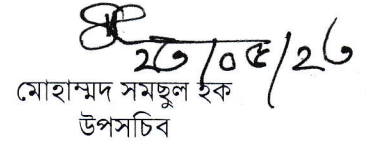 ২৩/০৫/২৩
মোহাম্মদ সমছুল হক
উপসচিব